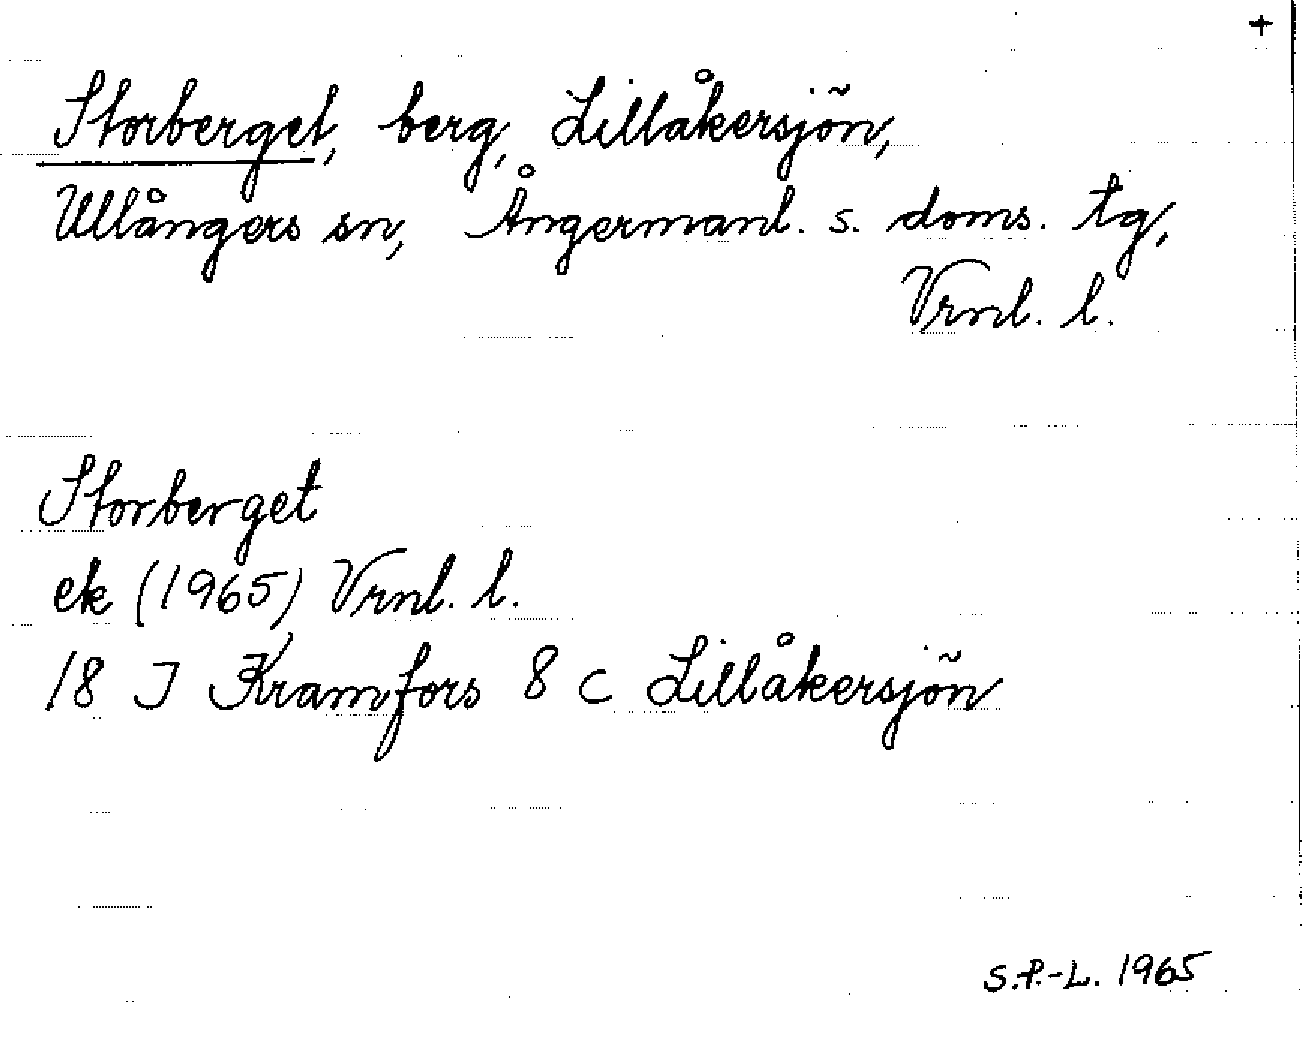 +
Storberget, berg, Lillåkersjön,
Ullångers sn, Ångermanl. s. doms. tg,
Vrnl. l.
Storberget
ek (1965) Vrnl. l.
18 J Kramfors 8 c Lillåkersjön
S.P.-L. 1965